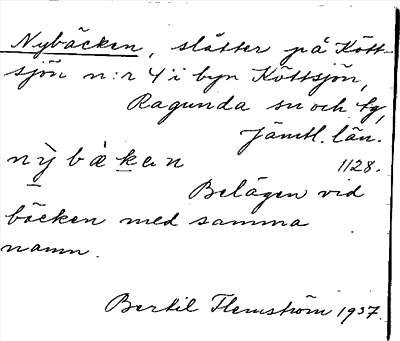 Nybäcken, slåtter på Kött-
sjön n:r 4 i byn Köttsjön,
Ragunda sn och tg,
Jämtl. län.
nỳbäkan 1128.
Belägen vid
bäcken med samma
namn.
Bertil Flemström 1937.